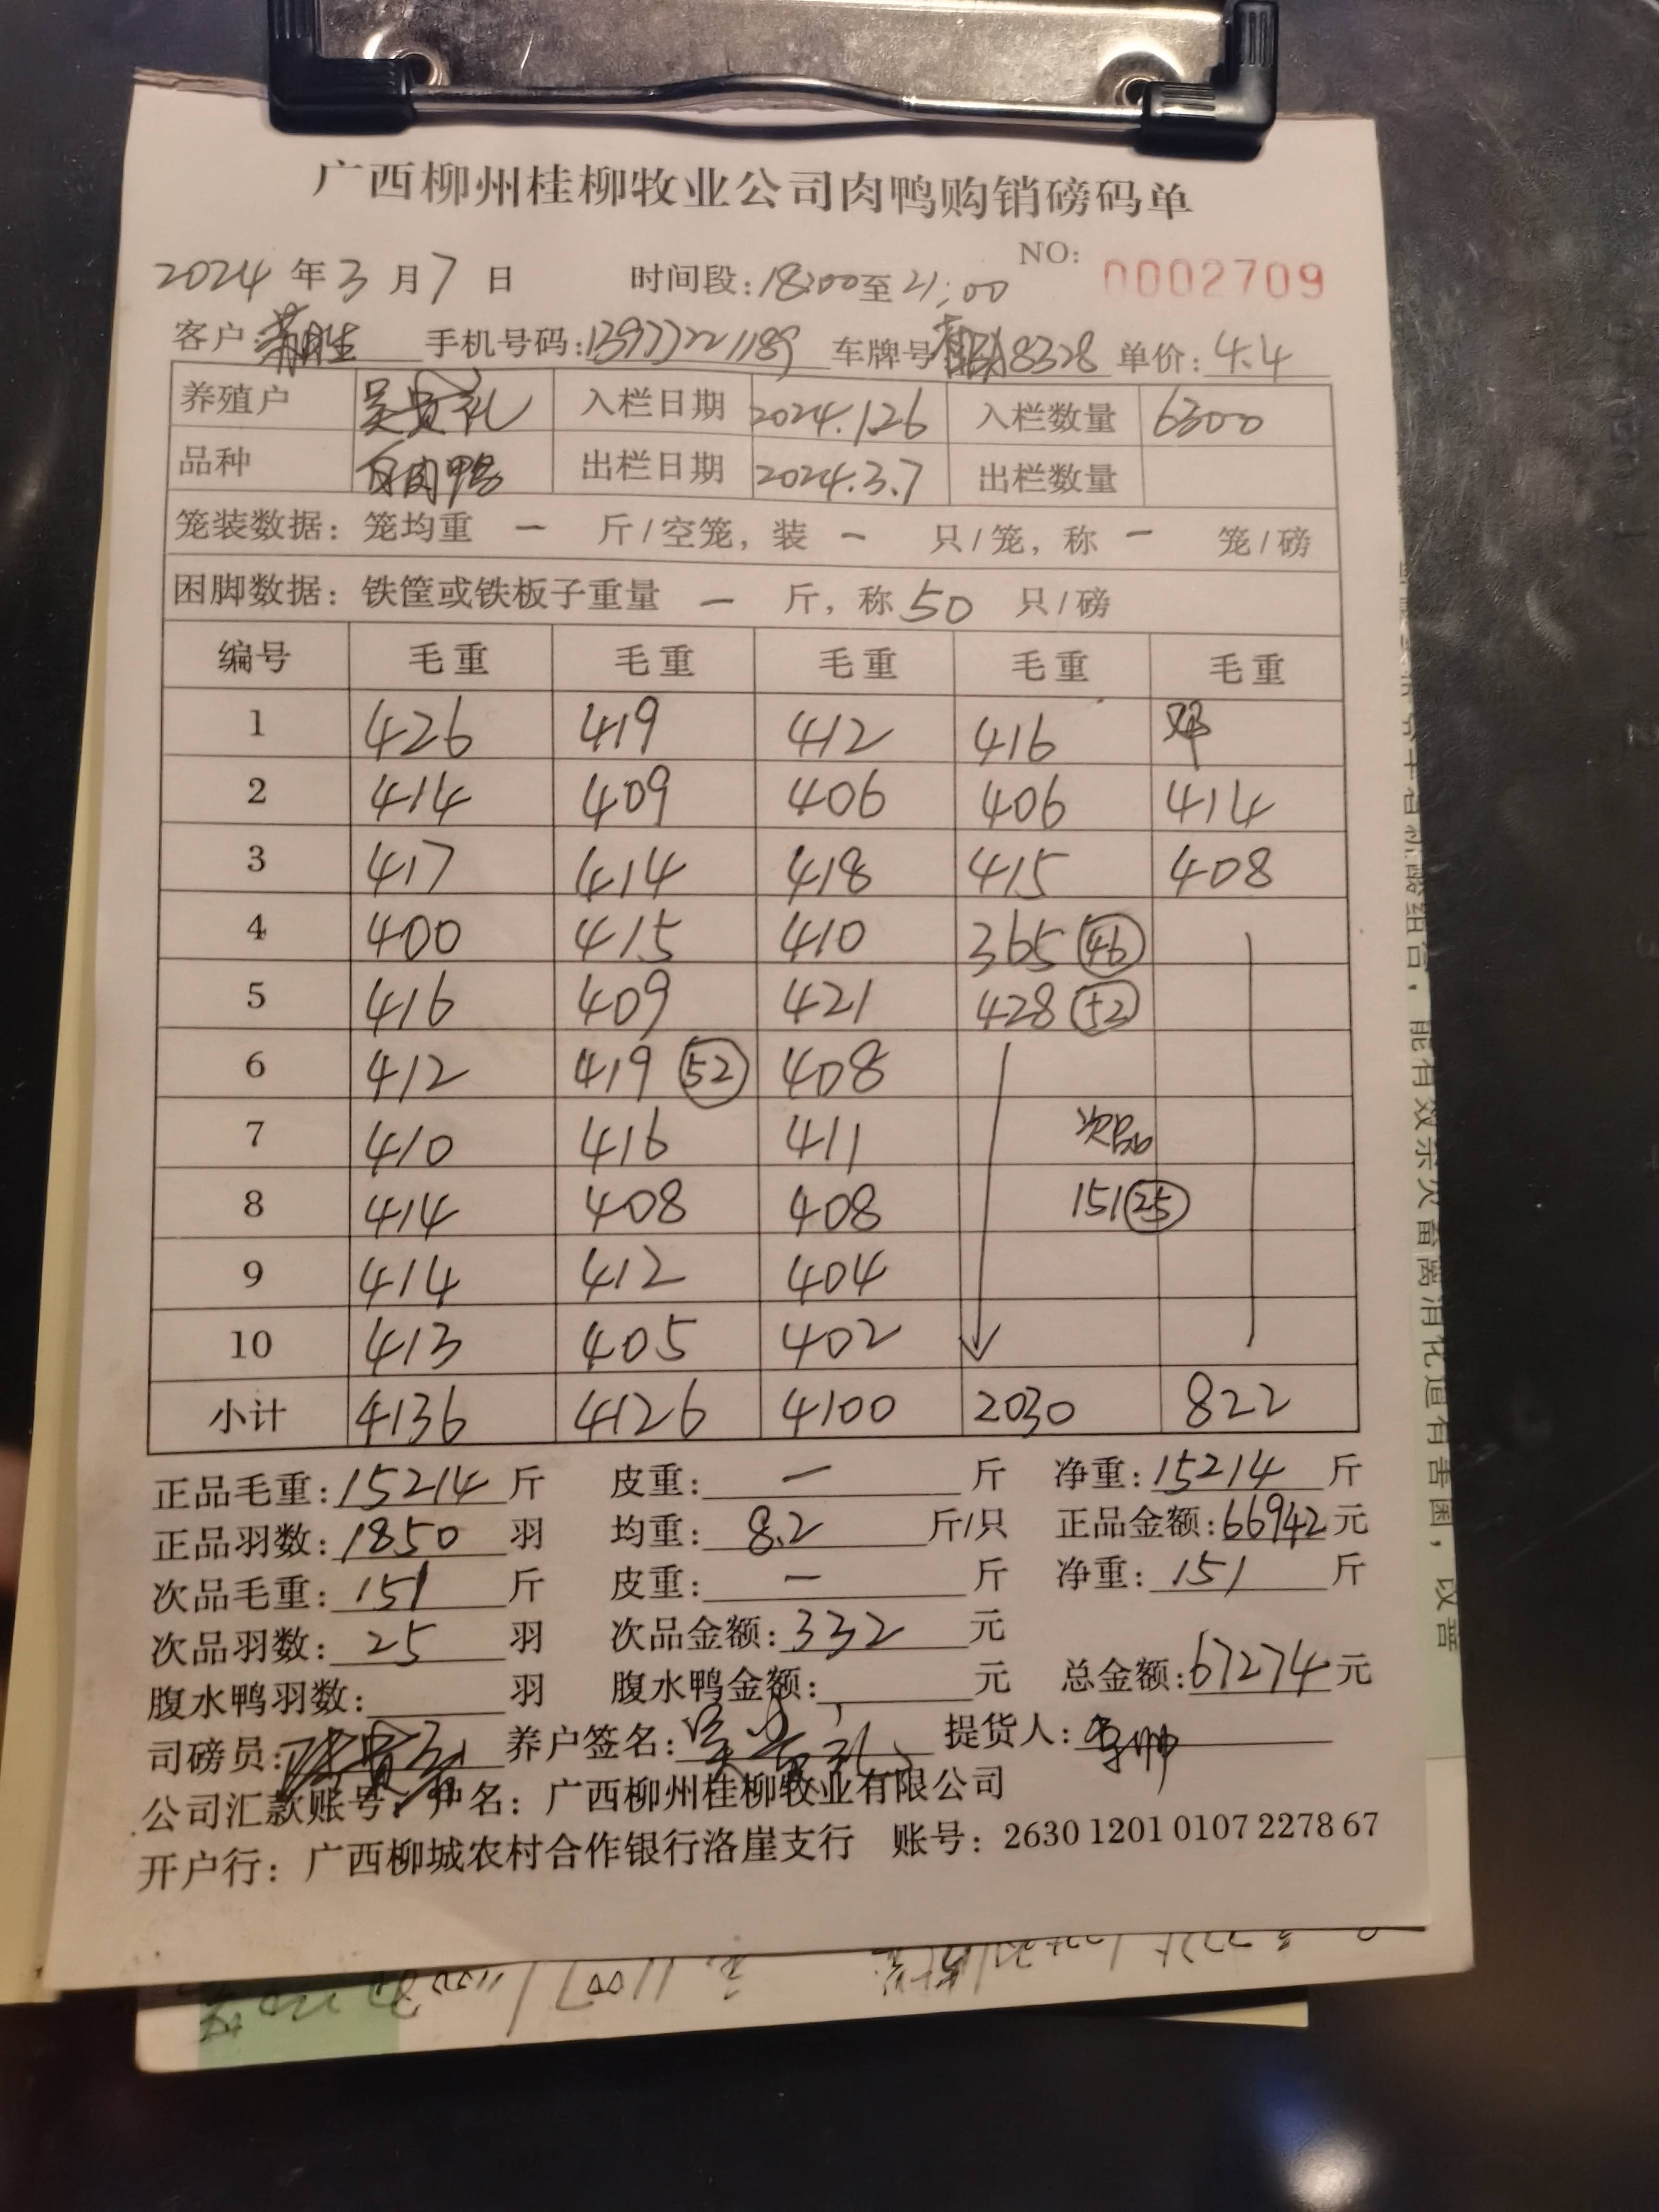 广西柳州桂柳牧业公司肉鸭购销磅码单
NO: 0002709
2024 年 3 月 7 日 时间段:18:00至21:00
客户: 手机号码:13977221189 车牌号 8328 单价:4.4
养殖户 吴贵礼 入栏日期 2024.1.26 入栏数量 6300
品种 白肉鸭 出栏日期 2024.3.7 出栏数量
笼装数据:笼均重 一 斤/空笼,装 一 只/笼,称 一 笼/磅
困脚数据:铁筐或铁板子重量 一 斤,称 50 只/磅
编号 毛重 毛重 毛重 毛重 毛重
1 426 419 412 416
2 414 409 406 406 414
3 417 414 418 415 408
4 400 415 410 365 46
5 416 409 421 428 52
6 412 419 52 408
7 410 416 411 次品
8 414 408 408 151 25
9 414 412 404
10 413 405 402
小计 4136 4126 4100 2030 822
正品毛重:15214 斤 皮重: 一 斤 净重:15214 斤
正品羽数:1850 羽 均重: 8.2 斤/只 正品金额:66942元
次品毛重:151 斤 皮重: 一 斤 净重:151 斤
次品羽数:25 羽 次品金额:332 元
腹水鸭羽数: 羽 腹水鸭金额: 元 总金额:67274元
司磅员: 养户签名:吴贵礼 提货人:
公司汇款账号:户名:广西柳州桂柳牧业有限公司
开户行:广西柳城农村合作银行洛崖支行 账号:2630 1201 0107 2278 67